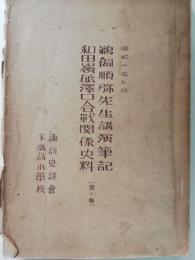 昭和十四年七月
鵜飼順弥先生講演筆記
和田嶺砥澤口合戦関係史料
(第一輯)
諏訪史談會
下諏訪小學校